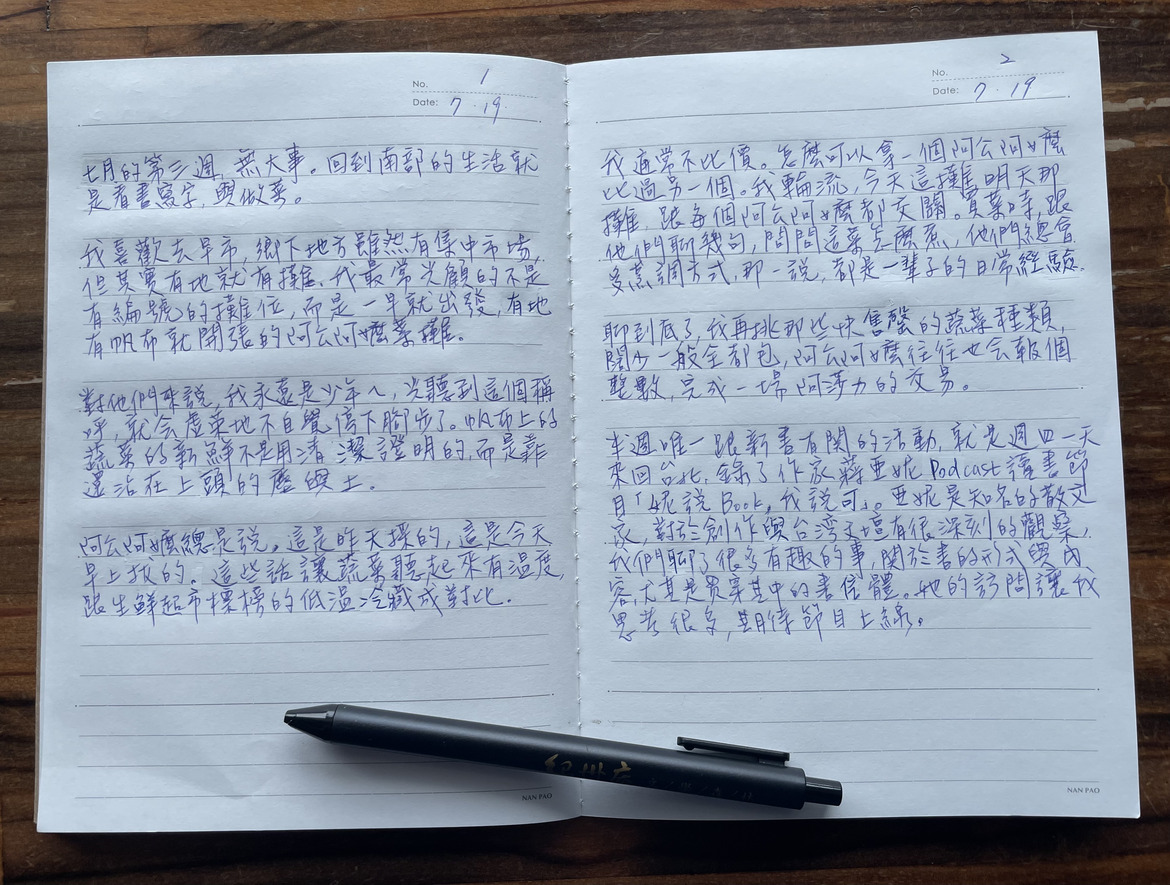 No. 1
Date: 7.19.
七月的第三週,無大事。回到南部的生活就
是看書寫字,與做菜。
我喜歡去早市,鄉下地方雖然有集中市場,
但其實有地就有攤。我最常光顧的不是
有編號的攤位,而是一早就出發,有地
有帆布就開張的阿公阿嬤菜攤。
對他們來說,我永遠是少年ㄟ,光聽到這個稱
呼,就会虛榮地不自覺停下腳步了。帆布上的
蔬菜的新鮮不是用清潔證明的,而是靠
還沾在上頭的塵與土。
阿公阿嬤總是說。這是昨天採的,這是今天
早上拔的。這些話讓蔬菜聽起來有溫度,
跟生鮮超市標榜的低溫冷藏成對比。
NAN PAO
No. 2
Date: 7.19
我通常不比價。怎麼可以拿一個阿公阿嬤
比過另一個。我輪流,今天這攤明天那
攤,跟每個阿公阿嬤都交關。買菜時,跟
他們聊幾句,問問這菜怎麼煮,他們總會
多烹調方式,那一說,都是一輩子的日常經驗。
聊到底了,我再挑那些快售罄的蔬菜種類,
闊少一般全部包,阿公阿嬤往往也会報個
整數,完成一場阿莎力的交易。
本週唯一跟新書有関的活動,就是週四一天
來回台北,錄了作家蔣亞妮Podcast讀書節
目「妮說Book,我說可」。亞妮是知名的散文
家,對於創作與台湾文壇有很深刻的觀察,
我們聊了很多有趣的事,関於書的形式與内
容,尤其是貫穿其中的書信體。她的訪問讓我
思考很多,期待節目上線。
NAN PAO
紀州庵